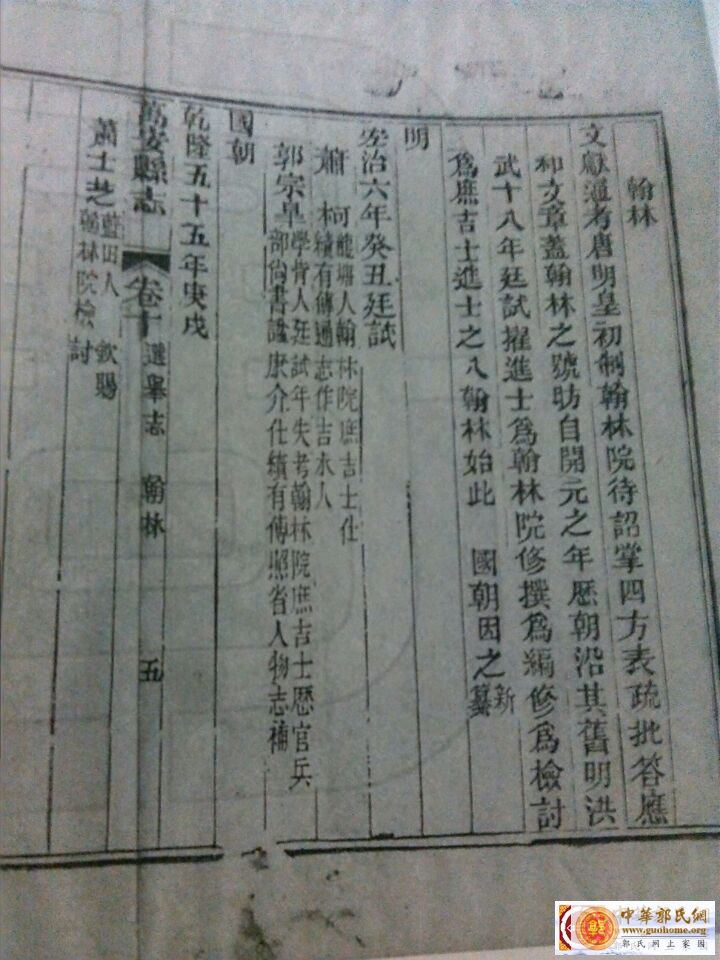 翰林
文獻通考唐明皇初制翰林院待詔掌四方表疏批答應
和文章蓋翰林之號昉自開元之年歷朝沿其舊明洪
武十八年廷試擢進士爲翰林院修撰爲編修爲檢討
爲庶吉士進士之入翰林始此 國朝因之新纂
明
弘治六年癸丑廷試
蕭柯龍塘人翰林院庶吉士仕
績有傳通志作吉水人
郭宗皐學背人廷試年失考翰林院庶吉士歷官兵
部尚書諡康介仕績有傳照省人物志補
國朝
乾隆五十五年庚戌
萬安縣志 卷十 選舉志 翰林 五
蕭士芝藍田人 欽賜
翰林院檢討
中華郭氏網
www.guohome.org
郭氏网上家园